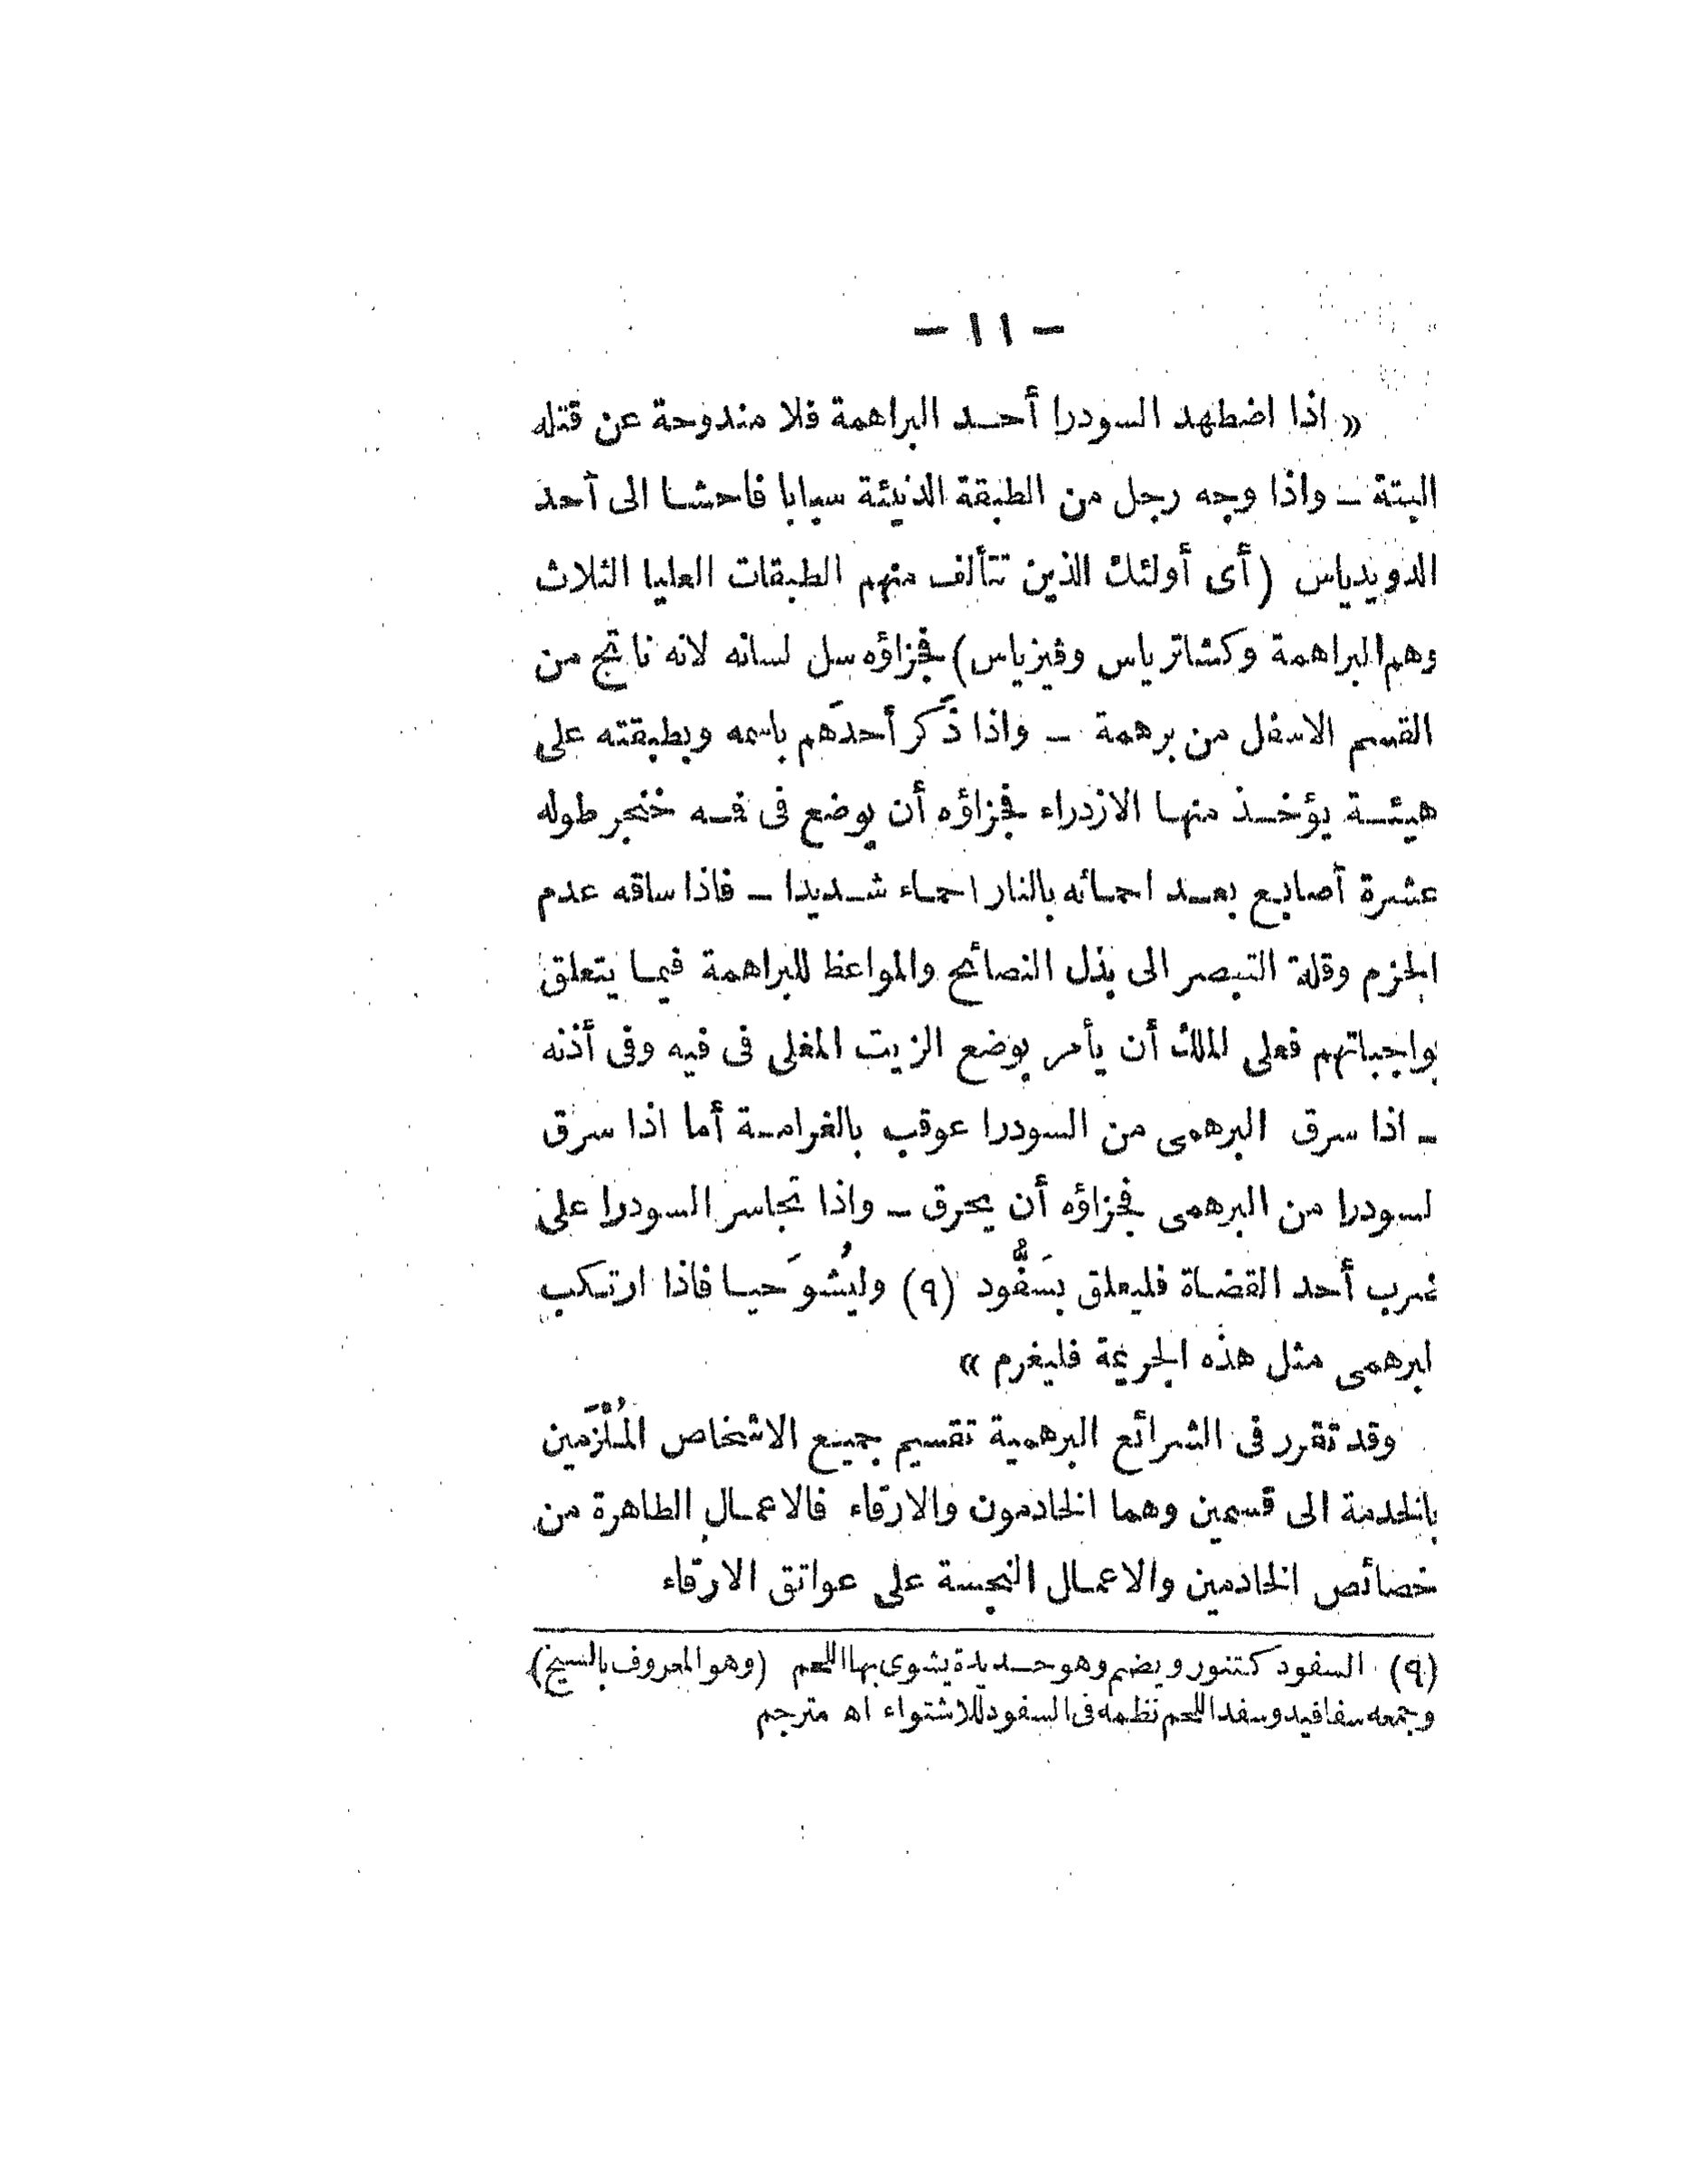 - ١١ -
« اذا اضطهد السودرا أحد البراهمة فلا مندوحة عن قتله
البتة – واذا وجه رجل من الطبقة الدنيئة سبابا فاحشا الى أحد
الدويدياس (أى أولئك الذين تتألف منهم الطبقات العليا الثلاث
وهم البراهمة وكشاترياس وڤيزياس) فجزاؤه سل لسانه لانه ناتج من
القسم الاسفل من برهمة – واذا ذَكر أحدَهم باسمه وبطبقته على
هيئة يؤخذ منها الازدراء فجزاؤه أن يوضع فى فمه خنجر طوله
عشرة أصابع بعد احمائه بالنار احماء شديدا – فاذا ساقه عدم
الحزم وقلة التبصر الى بذل النصائح والمواعظ للبراهمة فيما يتعلق
بواجباتهم فعلى الملك أن يأمر بوضع الزيت المغلى فى فيه وفى أذنه
– اذا سرق البرهمى من السودرا عوقب بالغرامة أما اذا سرق
لسودرا من البرهمى فجزاؤه أن يحرق – واذا تجاسر السودرا على
ضرب أحد القضاة فليعلق بسَفُّود (٩) وليُشوَ حيا فاذا ارتكب
لبرهمى مثل هذه الجريمة فليغرم »
وقد تقرر فى الشرائع البرهمية تقسيم جميع الاشخاص المُلْزَمين
بالخدمة الى قسمين وهما الخادمون والارقاء فالاعمال الطاهرة من
خصائص الخادمين والاعمال النجسة على عواتق الارقاء
(٩) السفود كتنور ويضم وهو حديدة يشوى بها اللحم (وهو المعروف بالسيخ)
وجمعه سفافيد وسفد اللحم نظمه فى السفود للاشتواء اه مترجم